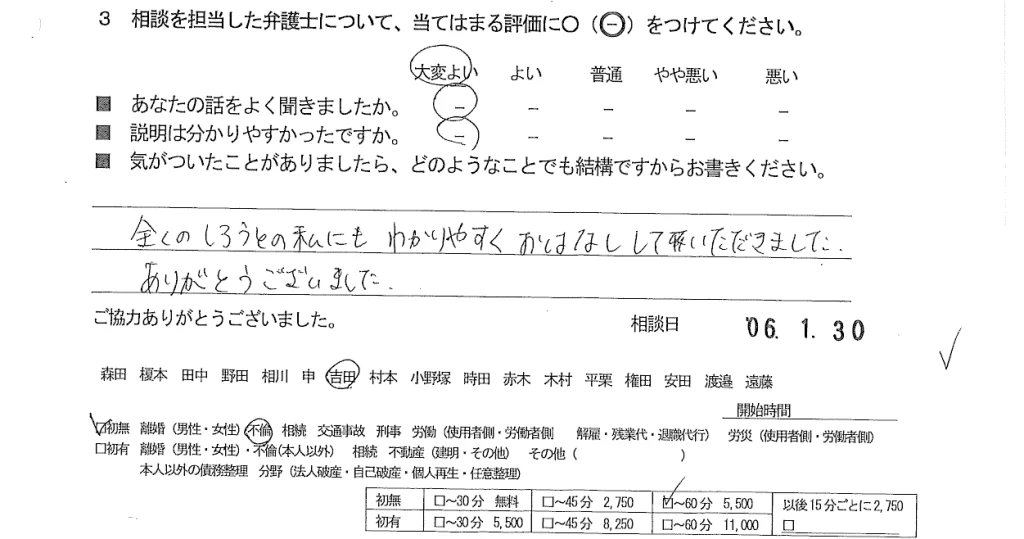 3 相談を担当した弁護士について、当てはまる評価に○（㊀）をつけてください。
大変よい よい 普通 やや悪い 悪い
■ あなたの話をよく聞きましたか。 － － － － －
■ 説明は分かりやすかったですか。 － － － － －
■ 気がついたことがありましたら、どのようなことでも結構ですからお書きください。
全くのしろうとの私にも わかりやすく おはなし して頂いただきました.
ありがとうございました.
ご協力ありがとうございました。 相談日 '06. 1. 30
森田 榎本 田中 野田 相川 申 吉田 村本 小野塚 時田 赤木 木村 平栗 権田 安田 渡邉 遠藤
開始時間
☑初無 離婚（男性・女性） 不倫 相続 交通事故 刑事 労働（使用者側・労働者側 解雇・残業代・退職代行） 労災（使用者側・労働者側）
□初有 離婚（男性・女性）・不倫(本人以外） 相続 不動産（建明・その他） その他（ ）
本人以外の債務整理 分野（法人破産・自己破産・個人再生・任意整理）
初無 □～30分 無料 □～45分 2,750 ☑～60分 5,500 以後15分ごとに2,750
初有 □～30分 5,500 □～45分 8,250 □～60分 11,000 □